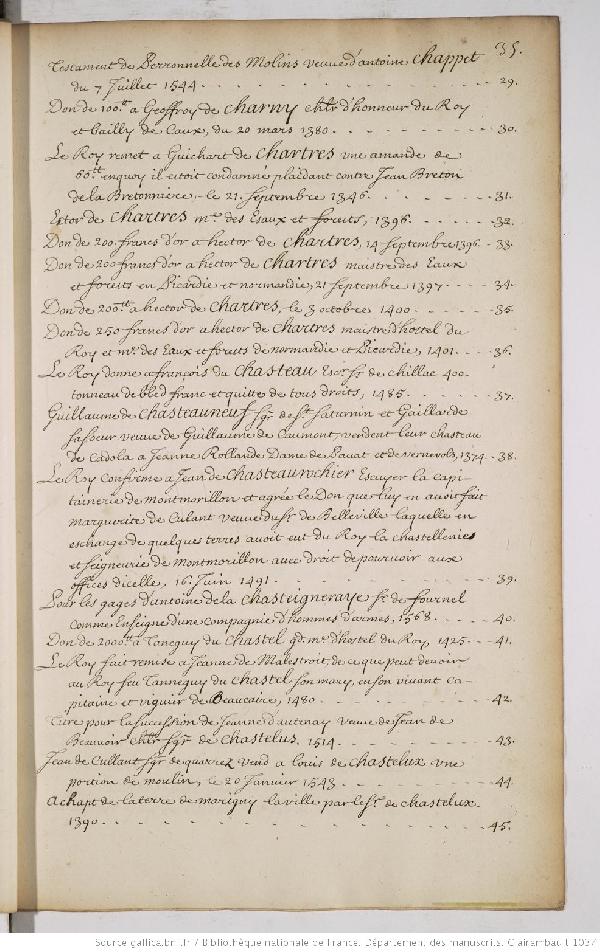 35.
Testament de Perronnelle des Molins veuve d'antoine chappet
du 7 Juillet 1544 . . . . . . . . . . . . 29.
Don de 100.tt a Geoffroy de charny chlr d'honneur du Roy
et bailly de Caux, du 20 mars 1380 . . . . . . . 30.
Le Roy remet a Guichart de chartres une amande de
60.tt enquoy il estoit condamné plaidant contre Jean Breton
de la Bretonniere, le 21. septembre 1346 . . . . . 31.
Ector de chartres m.e des Eaux et forets, 1396 . . . . . 32.
Don de 200 francs d'or a hector de chartres, 14 septembre 1396 . 33.
Don de 200 francs d'or a hector de chartres maistre des Eaux
et forets en Picardie et normandie, 21 septembre 1397 . . . 34.
Don de 200tt a hector de chartres, le 3 octobre 1400 . . . . 35.
Don de 250 francs d'or a hector de chartres maistre d'hostel du
Roy et m.e des Eaux et forets de normandie et Picardie, 1401 . . . 36.
Le Roy donne a françois du chasteau Escr Sr de chillac 400.
tonneau de bled franc et quitte de tous droits, 1485 . . . . 37.
Guillaume de chasteauneuf sgr de St Saturnin et Gaillarde
sa soeur veuve de Guillaume de Caumont, vendent leur chasteau
de Cadola a Jeanne Rollande Dame de et de vernevols, 1374 . 38.
Le Roy confirme a Jean de chasteauvchier Escuyer la capi-
tainerie de montmorillon et agrée le Don que luy en avoit fait
marguerite de Culant veuve du Sr de Belleville laquelle en
eschange de quelques terres avoit eut du Roy la chastellenies
et seigneurie de montmorillon avec droit de pourvoir aux
offices d'icelle, 16. Juin 1491 . . . . . . . . 39.
Pour les gages d'antoine de la chasteigneraye Sr de fournel
comme Enseigne d'une compagnie d'hommes d'armes, 1568 . . . . 40.
Don de 2000tt a Taneguy du chastel gd me d'hostel du Roy, 1425 . . 41.
Le Roy fait remise a Jeanne de Malestroit de ce que peut devoir
au Roy feu Tanneguy du chastel son mary, en son vivant ca-
pitaine et viguier de Beaucaire, 1480 . . . . . . . 42.
Titre pour la succession de Jeanne d'autenay veuve de Jean de
Beauvoir chlr sgr de chastelus, 1514 . . . . . . . 43.
Jean de Cullant sgr de quarrez vend a louis de chastelux une
portion de moulin, le 20 Janvier 1543 . . . . . . . 44.
achapt de la terre de marigny la ville par le Sr de chastelux
1390 . . . . . . . . . . . . . . . . 45.
Source gallica.bnf.fr / Bibliothèque nationale de France. Département des manuscrits. Clairambault 1037